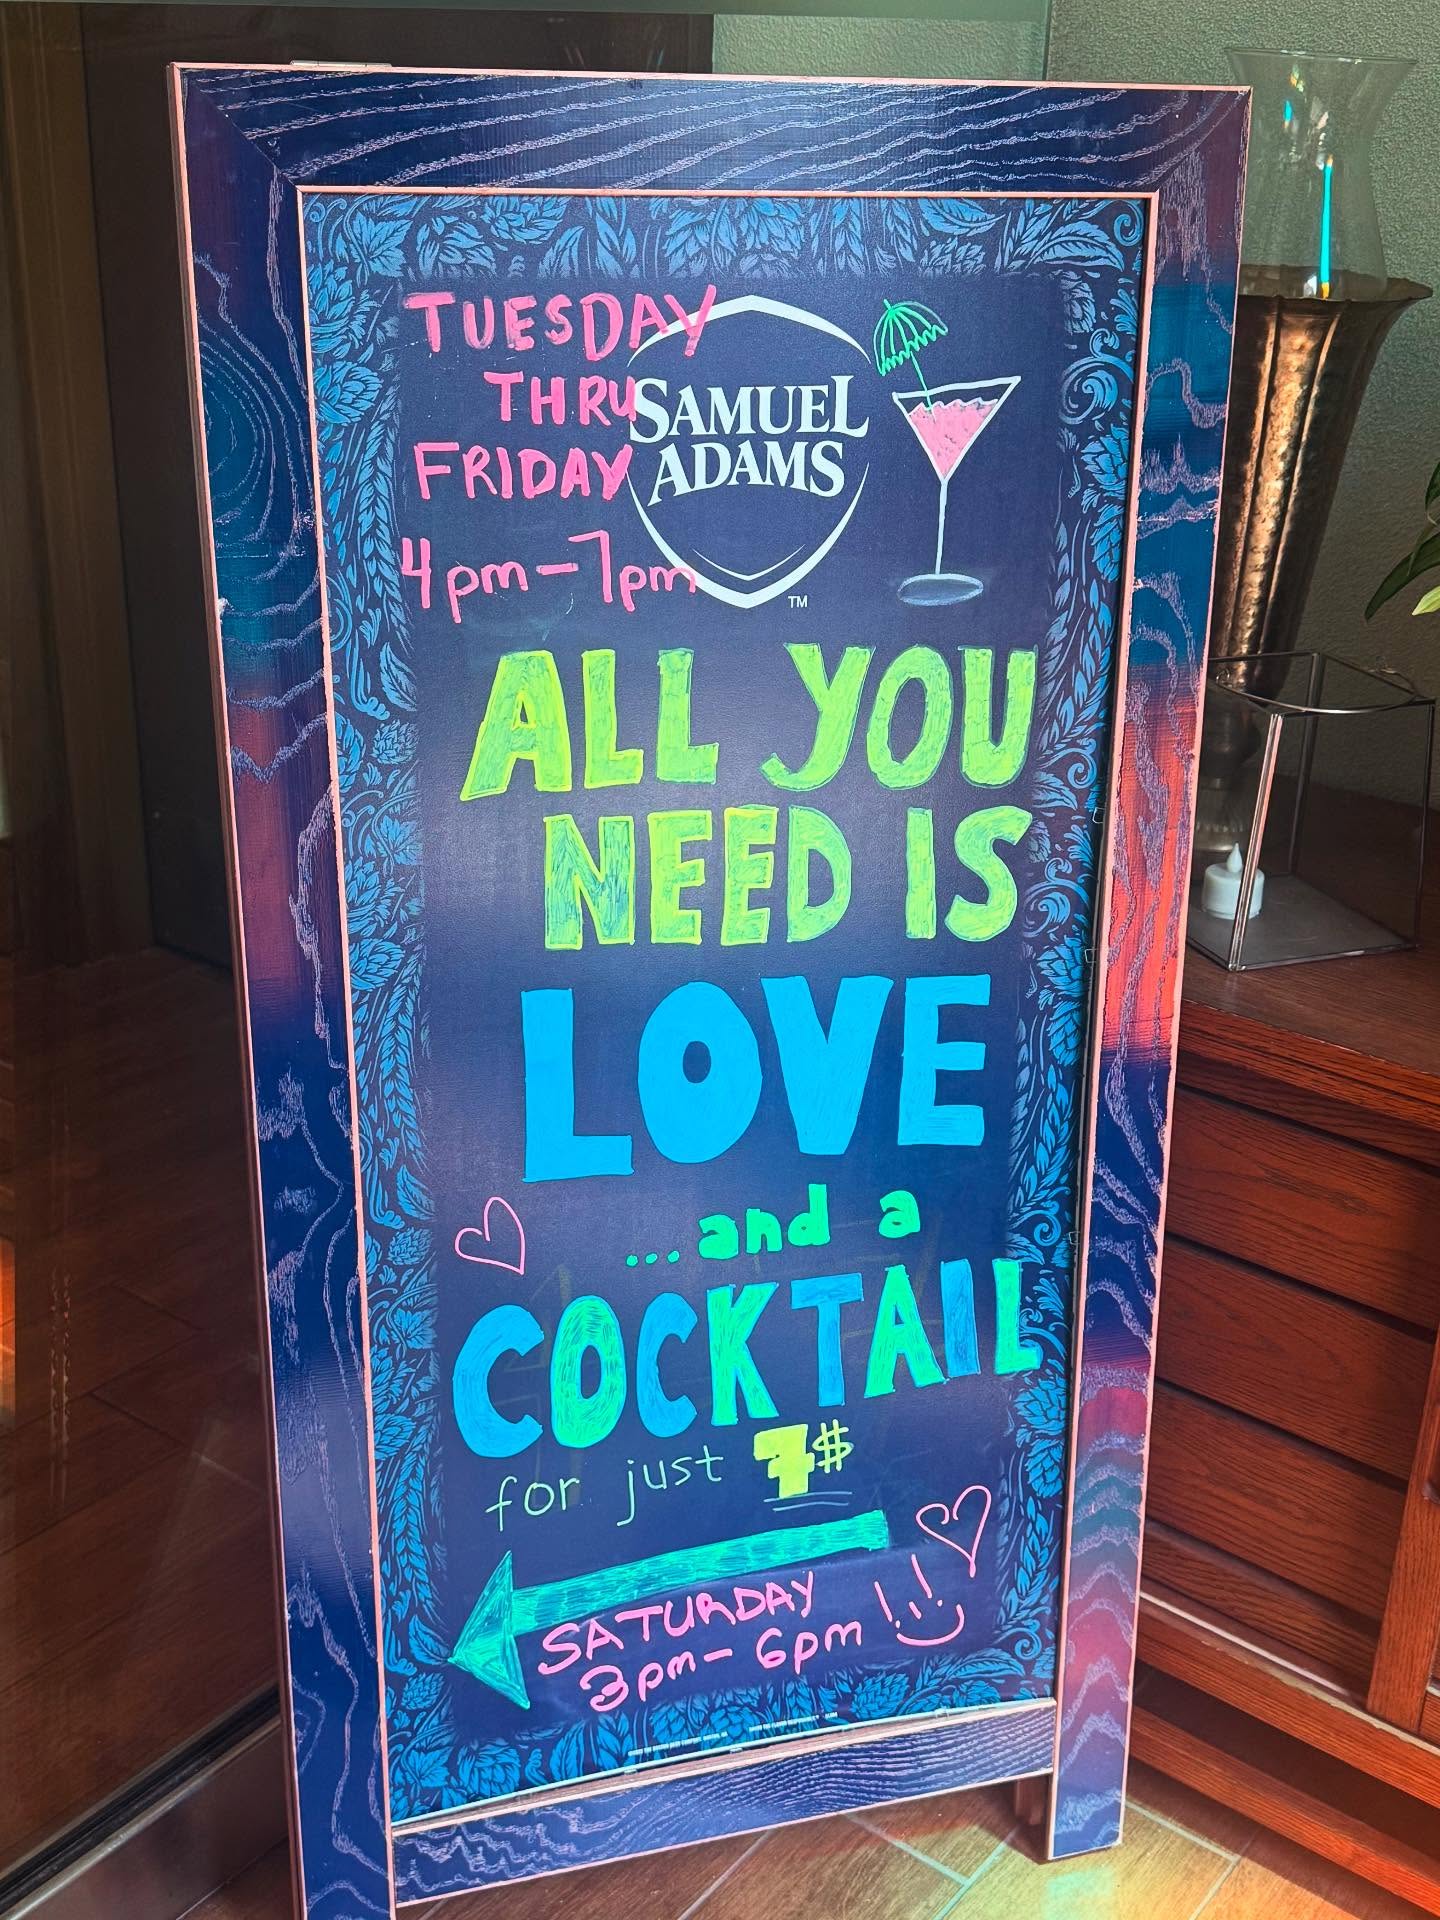 TUESDAY
THRU
FRIDAY
4pm-7pm
SAMUEL
ADAMS
TM
ALL YOU
NEED IS
LOVE
...and a
COCKTAIL
for just 7$
SATURDAY
3pm-6pm